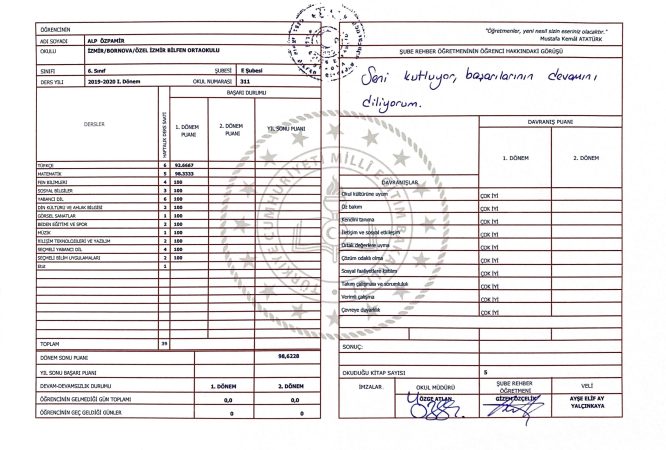 ÖĞRENCİNİN
ADI SOYADI ALP ÖZPAMİR
OKULU İZMİR/BORNOVA/ÖZEL İZMİR BİLFEN ORTAOKULU
SINIFI 6. Sınıf ŞUBESİ E Şubesi
DERS YILI 2019-2020 I. Dönem OKUL NUMARASI 311
DERSLER HAFTALIK DERS SAATİ BAŞARI DURUMU
1. DÖNEM PUANI 2. DÖNEM PUANI YIL SONU PUANI
TÜRKÇE 6 92,6667
MATEMATİK 5 98,3333
FEN BİLİMLERİ 4 100
SOSYAL BİLGİLER 3 100
YABANCI DİL 6 100
DİN KÜLTÜRÜ VE AHLAK BİLGİSİ 2 100
GÖRSEL SANATLAR 1 100
BEDEN EĞİTİMİ VE SPOR 2 100
MÜZİK 1 100
BİLİŞİM TEKNOLOJİLERİ VE YAZILIM 2 100
SEÇMELİ YABANCI DİL 4 100
SEÇMELİ BİLİM UYGULAMALARI 2 100
1
TOPLAM 39
DÖNEM SONU PUANI 98,6228
YIL SONU BAŞARI PUANI
DEVAM-DEVAMSIZLIK DURUMU 1. DÖNEM 2. DÖNEM
ÖĞRENCİNİN GELMEDİĞİ GÜN TOPLAMI 0,0 0,0
ÖĞRENCİNİN GEÇ GELDİĞİ GÜNLER 0 0
TÜRKİYE CUMHURİYETİ MİLLÎ EĞİTİM BAKANLIĞI
"Öğretmenler, yeni nesil sizin eseriniz olacaktır."
Mustafa Kemâl ATATÜRK
ŞUBE REHBER ÖĞRETMENİNİN ÖĞRENCİ HAKKINDAKİ GÖRÜŞÜ
Seni kutluyor, başarılarının devamını
diliyorum.
DAVRANIŞLAR DAVRANIŞ PUANI
1. DÖNEM 2. DÖNEM
Okul kültürüne uyum ÇOK İYİ
Öz bakım ÇOK İYİ
Kendini tanıma ÇOK İYİ
İletişim ve sosyal etkileşim ÇOK İYİ
Ortak değerlere uyma ÇOK İYİ
Çözüm odaklı olma ÇOK İYİ
Sosyal faaliyetlere katılım ÇOK İYİ
Takım çalışması ve sorumluluk ÇOK İYİ
Verimli çalışma ÇOK İYİ
Çevreye duyarlılık ÇOK İYİ
SONUÇ:
OKUDUĞU KİTAP SAYISI 5
İMZALAR OKUL MÜDÜRÜ ŞUBE REHBER ÖĞRETMENİ VELİ
ÖZGE ATLAN GİZEM ÖZÇELİK AYŞE ELİF AY YALÇINKAYA